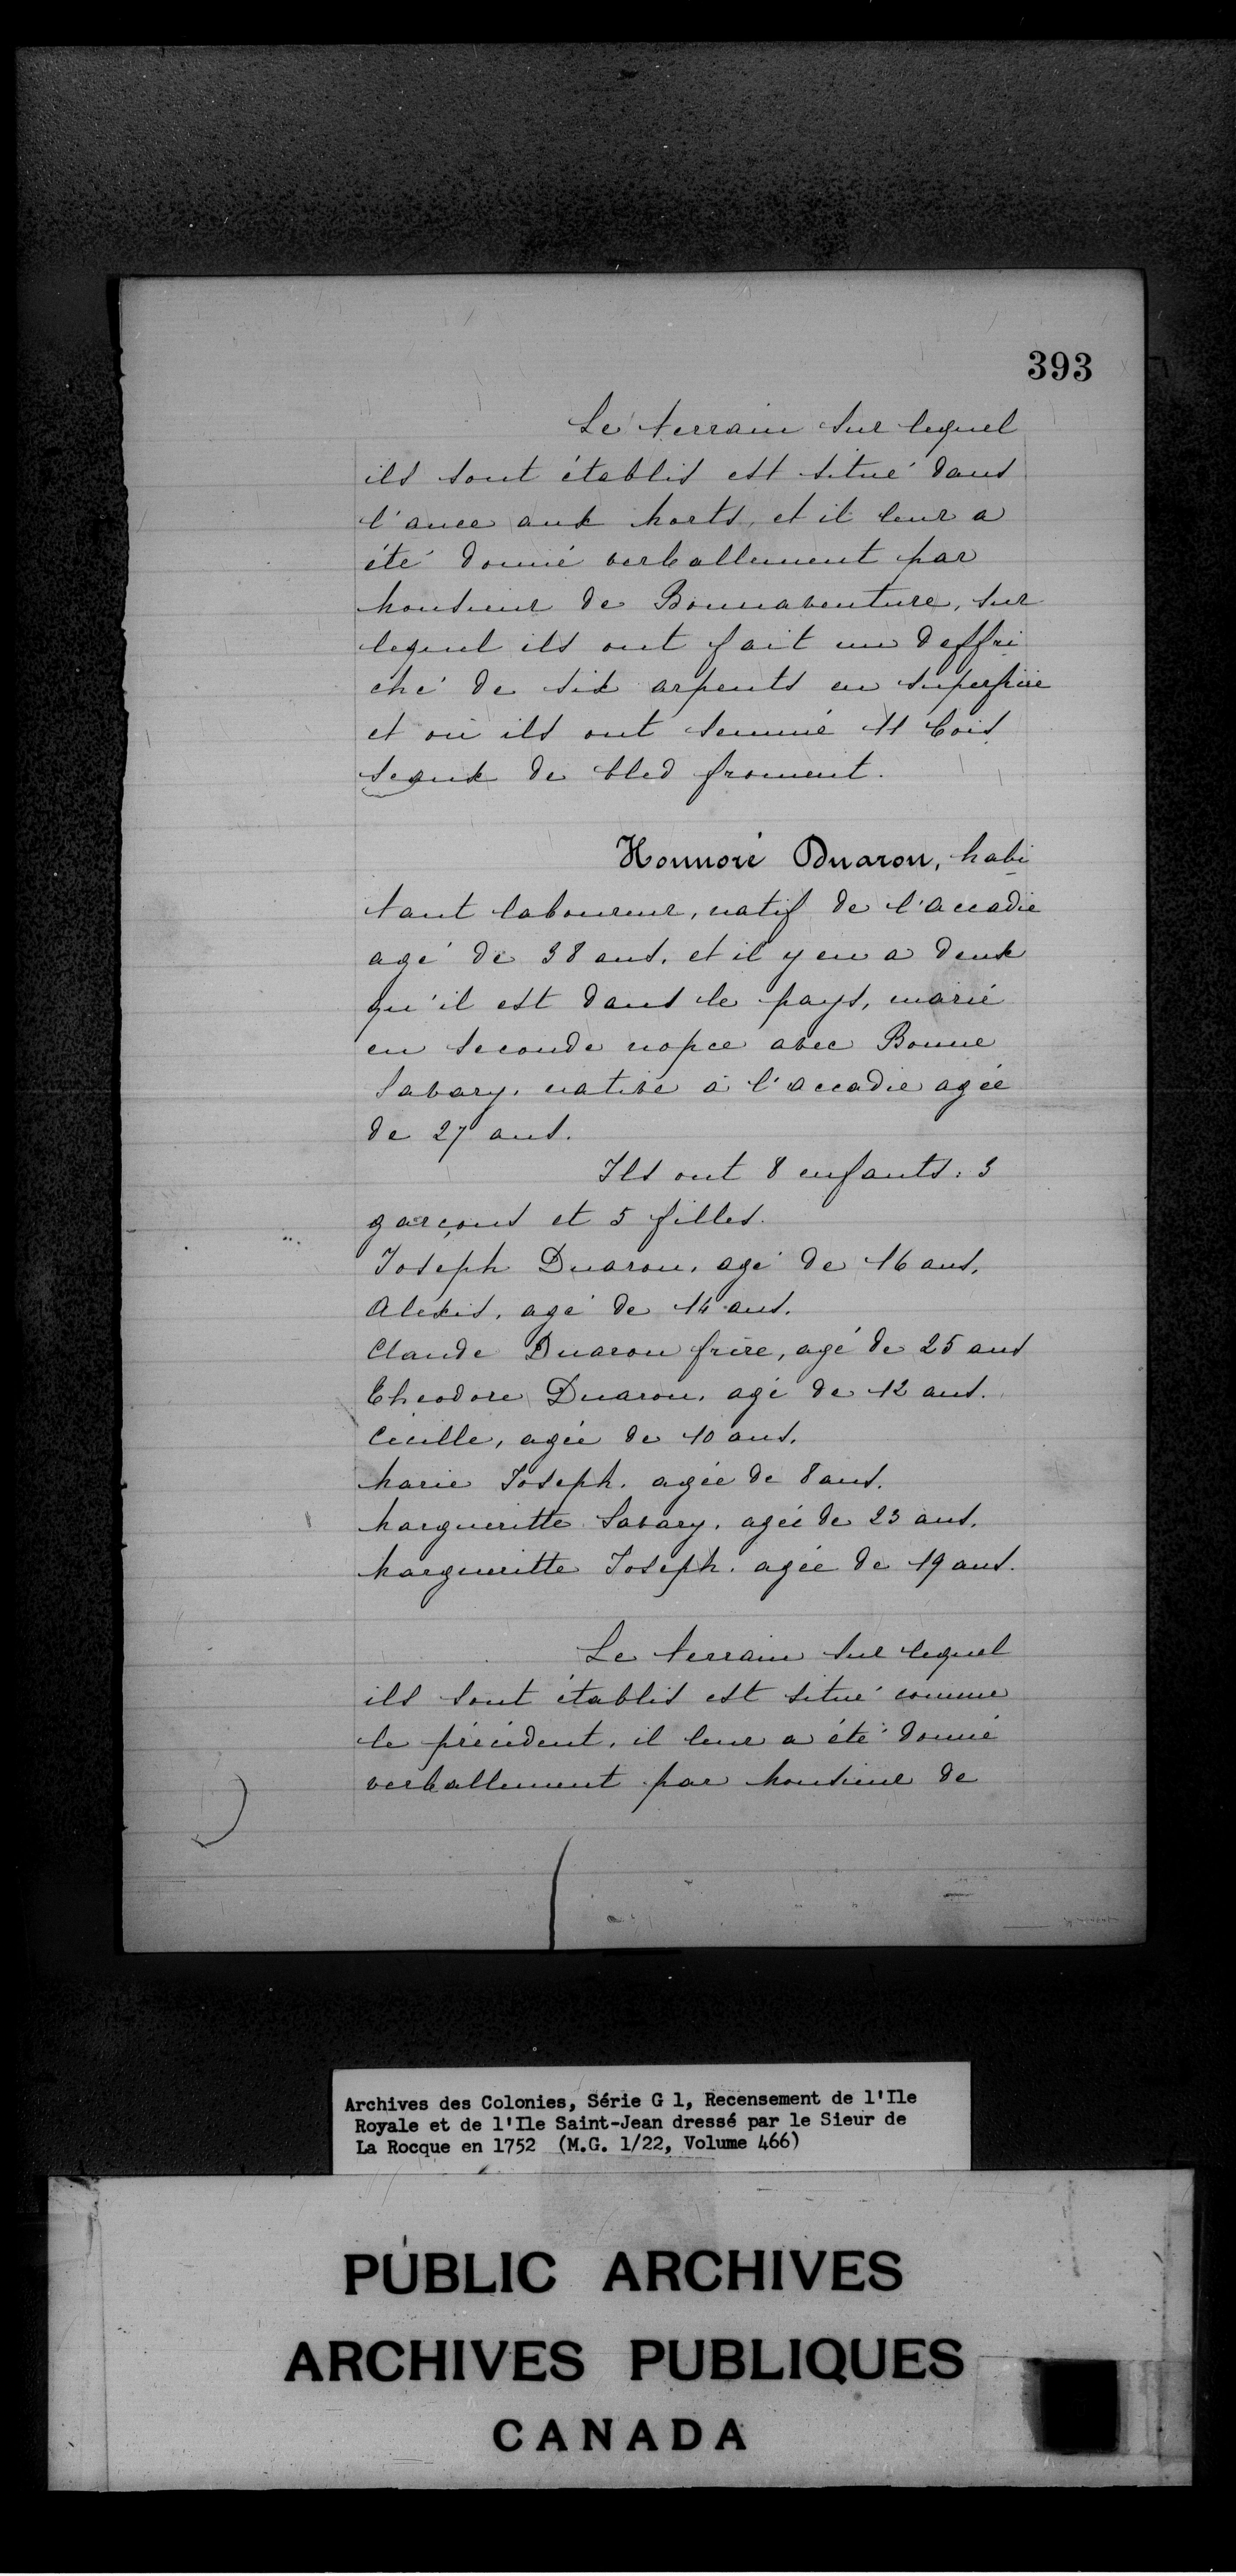 393
Le terrain sur lequel
ils sont établis est situé dans
l'ance aux Morts, et il leur a
été donné verballement par
Monsieur de Bonnaventure, sur
lequel ils ont fait un deffri
ché de six arpents en superficie
et où ils ont semmé 11 bois
seaux de bled froment.
Honnoré Duaron, habi
tant laboureur, natif de l'accadie
agé de 38 ans, et il y en a deux
qu'il est dans le pays, marié
en seconde nopce avec Bonne
Savary, native à l'accadie agée
de 27 ans.
Ils ont 8 enfants: 3
garçons et 5 filles.
Joseph Duaron, agé de 16 ans,
Alexis, agé de 14 ans.
Claude Duaron frère, agé de 25 ans
Theodore Duaron, agé de 12 ans.
Cécille, agée de 10 ans,
Marie Joseph, agée de 8 ans.
Margueritte Savary, agée de 23 ans,
Margueritte Joseph, agée de 19 ans.
Le terrain sur lequel
ils sont établis est situé comme
le précédent, il leur a été donné
verballement par Monsieur de
Archives des Colonies, Série G 1, Recensement de l'Ile
Royale et de l'Ile Saint-Jean dressé par le Sieur de
La Rocque en 1752 (M.G. 1/22, Volume 466)
PUBLIC ARCHIVES
ARCHIVES PUBLIQUES
CANADA